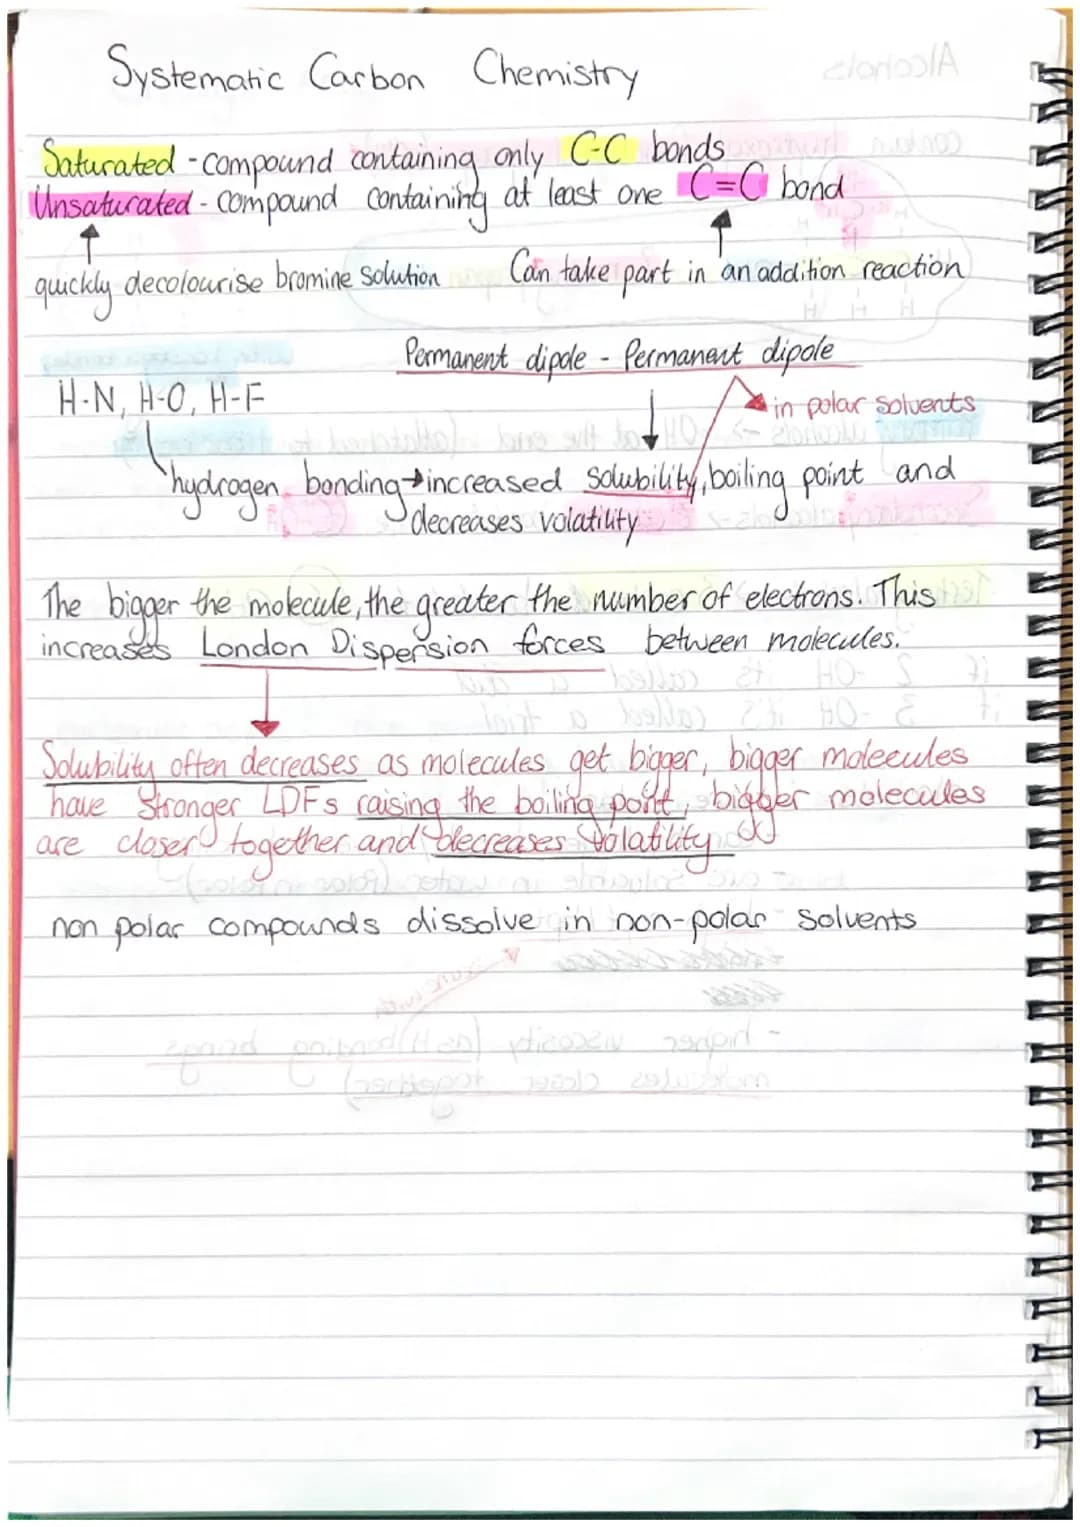 Systematic Carbon Chemistry
Saturated - compound containing only C-C bonds
Unsaturated - compound containing at least one C=C bond
quickly decolourise bromine solution Can take part in an addition reaction
Permanent dipole - Permanent dipole
H-N, H-O, H-F
in polar solvents
hydrogen bonding → increased solubility, boiling point and
decreases volatility
The bigger the molecule, the greater the number of electrons. This
increases London Dispersion forces between molecules.
Solubility often decreases as molecules get bigger, bigger molecules
have stronger LDFs raising the boiling point, bigger molecules
are closer together and decreases volatility
non polar compounds dissolve in non-polar solvents